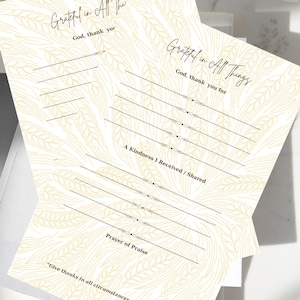 Grateful in All
God, thank you
Grateful in All Things
God, thank you for
A Kindness I Received / Shared
Prayer of Praise
"Give thanks in all circumstances